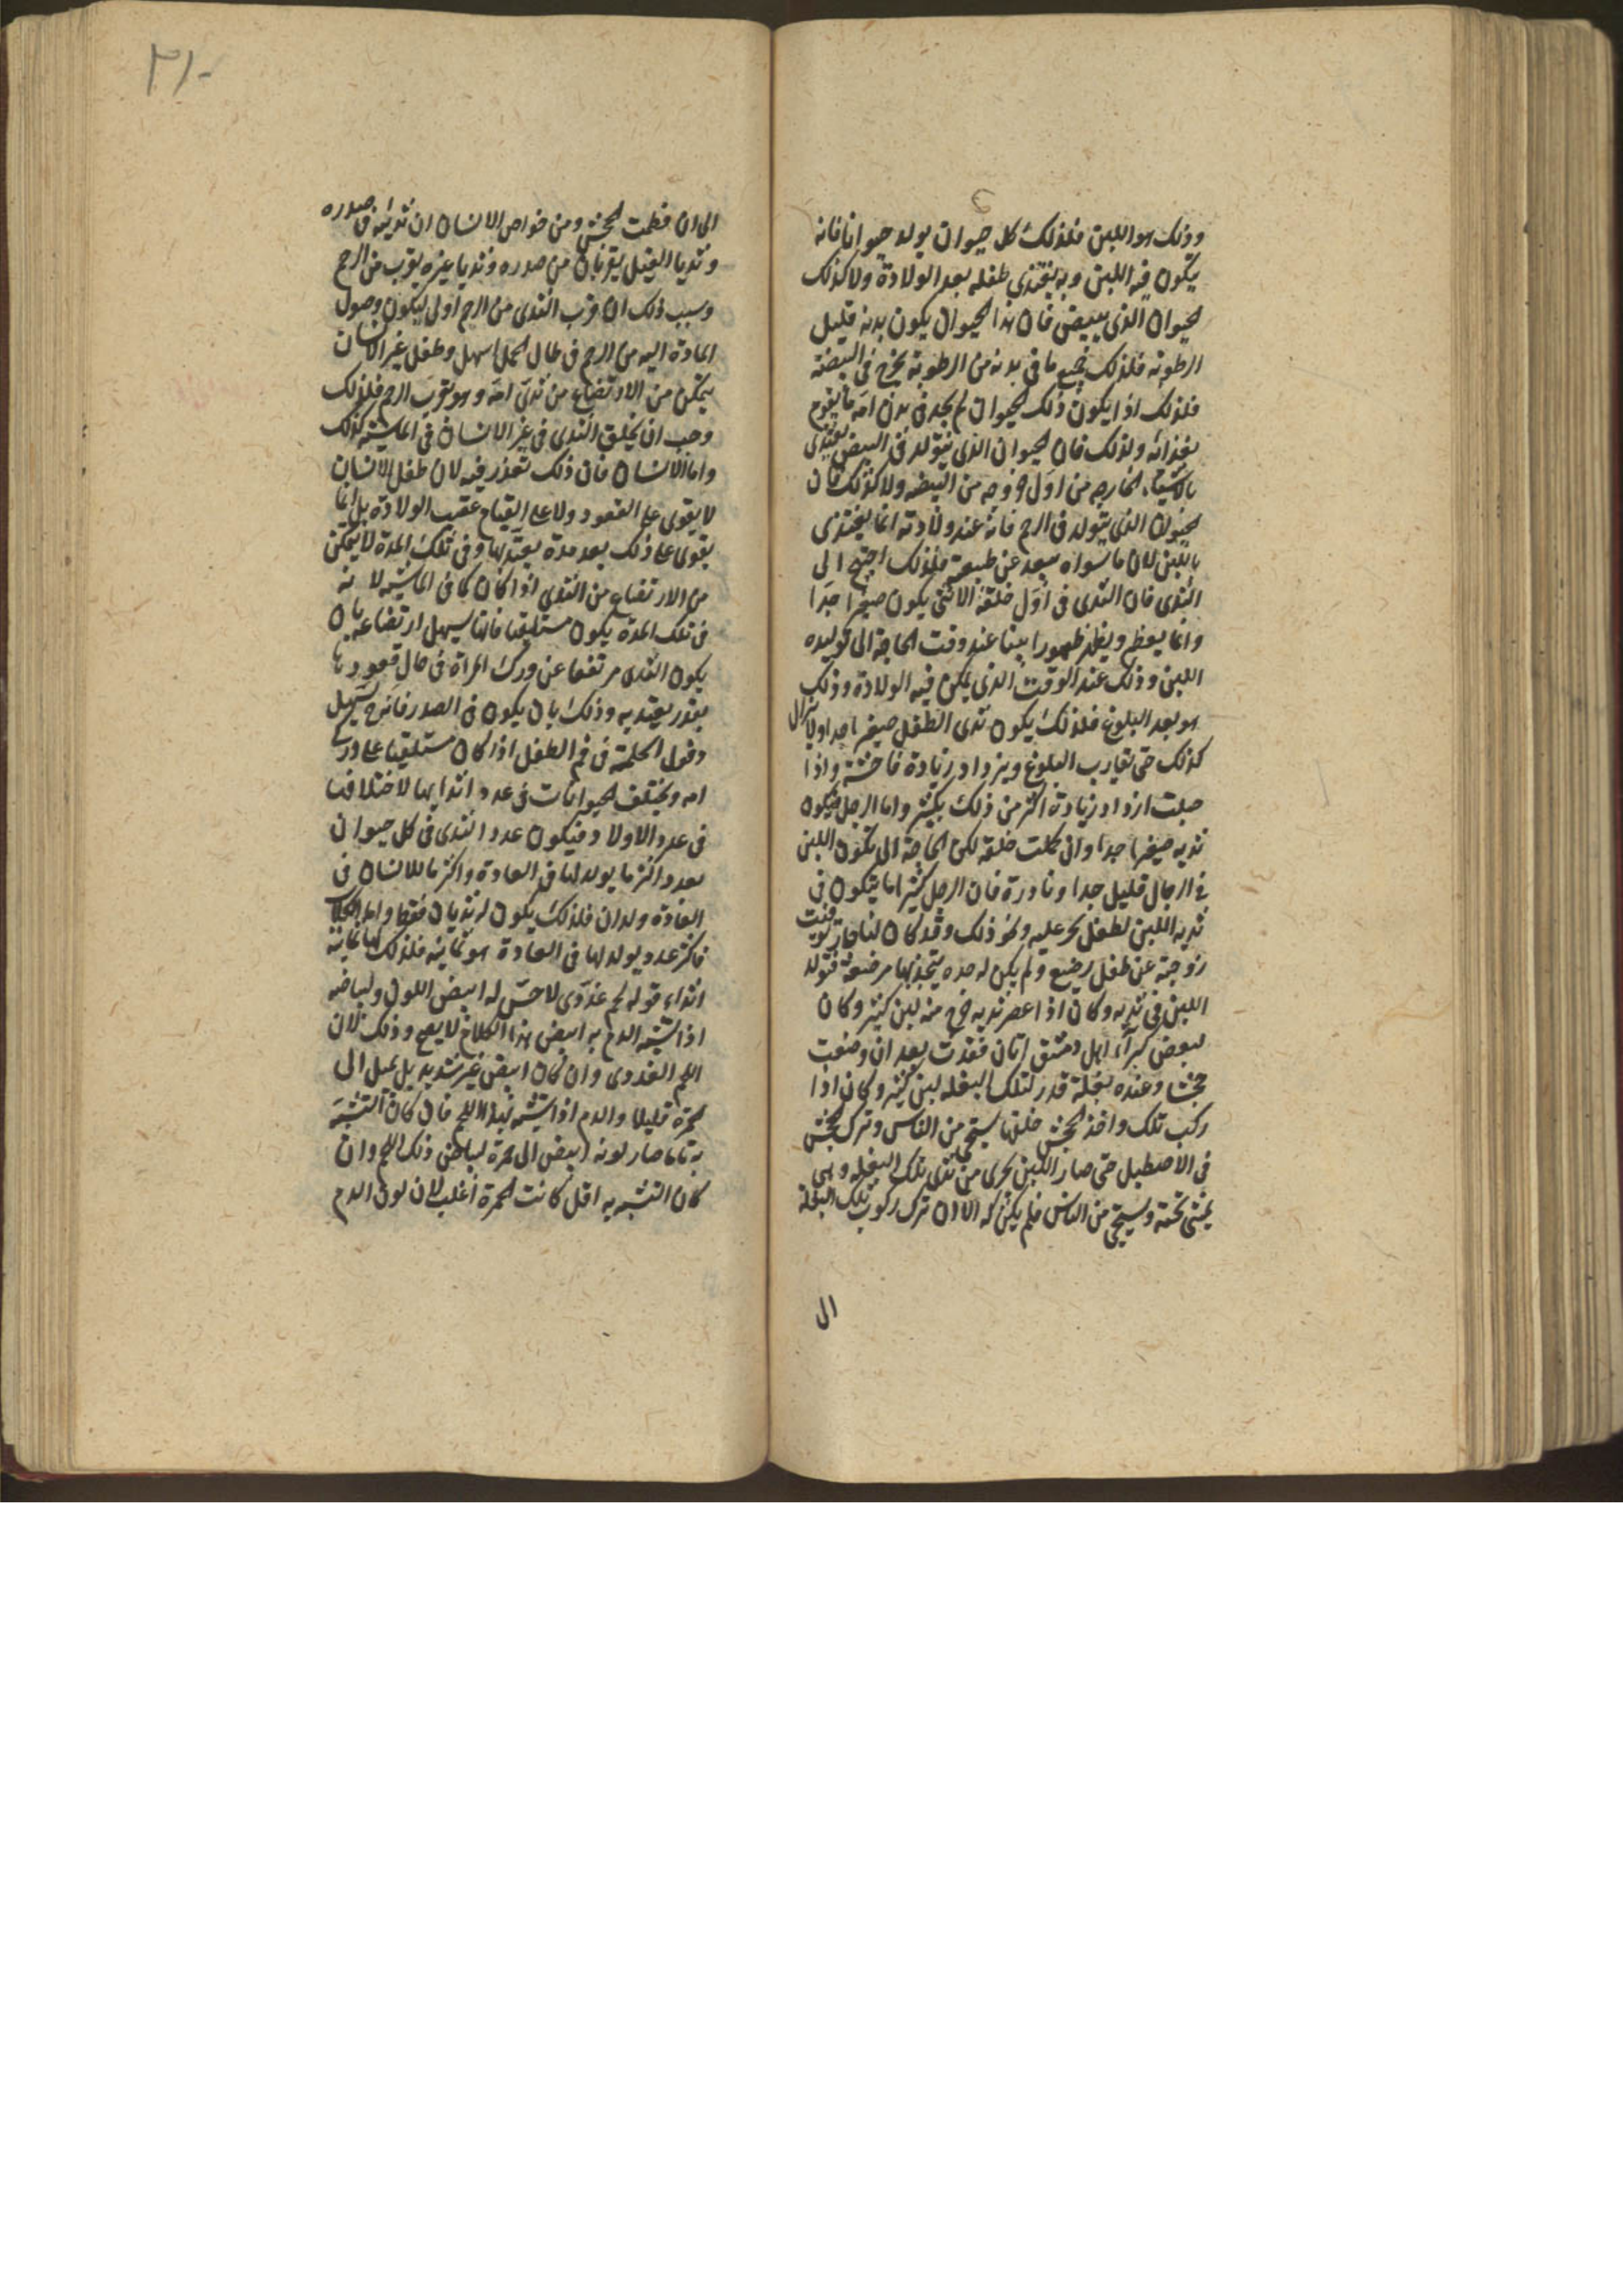 وذلك هو اللبن فلذلك كل حيوان يولد حيوانا فانه
يتكون فيه اللبن وبه يغتذي طفله بعد الولادة ولا كذلك
الحيوان الذي يبيض فان هذا الحيوان يكون بدنه قليل
الرطوبة فلذلك جميع ما في بدنه من الرطوبة يخرج في البيضة
فلذلك اذا يكون ذلك الحيوان لم يجد في بدن امه ما يقوم
بغذائه ولذلك فان الحيوان الذي يتولد في البيض يغتذي
بالاشياء الخارجه من اول خروجه من البيضه ولا كذلك فان
الحيوان الذي يتولد في الرحم فانه عند ولادته انما يغتذي
باللبن لان ما سواه بعيد عن طبيعته فلذلك احتيج الى
الثدي فان الثدي في اول خلقة الانثى يكون صغيرا جدا
وانما يعظم ويظهر ظهورا بينا عند وقت الحاجة الى توليده
اللبن وذلك عند الوقت الذي يمكن فيه الولادة وذلك
هو بعد البلوغ فلذلك يكون ثدي الطفل صغيرا جدا ولا يزال
كذلك حتى تقارب البلوغ ويزداد زيادة فاحشة واذا
حبلت ازداد زيادة اكثر من ذلك بكثير واما الرجل فيكون
ثديه صغيرا جدا وان كملت خلقته لكن الحاجة الى تكون اللبن
في الرجال قليل جدا ونادرة فان الرجل كثيرا ما يتكون في
ثديه اللبن لطفل يحن عليه ونحو ذلك وقد كان لنا جار توفيت
زوجته عن طفل رضيع ولم يكن له جده يتخذ بها مرضعة فتولد
اللبن في ثديه وكان اذا عصر ثديه خرج منه لبن كثير وكان
لبعض كبرآء اهل دمشق اتان فقدت بعد ان وضعت
جحشا وعنده بغلة قدر لتلك البغله لبن كثير وكان اذا
ركب تلك واخذ الجحش خلفها يستحي من الناس وترك الجحش
في الاصطبل حتى صار اللبن يجرى من ثدي تلك البغله وهي
يمشي تحته ويستحي من الناس فلم يكن له الا ان ترك ركوب تلك البغلة
الى
٣١٠
الى ان فطمت الجحش ومن خواص الانسان ان ثدييه في صدره
وثديا الفيل يقربان من صدره وثديا غيره يقرب من الرحم
وسبب ذلك ان قرب الثدى من الرحم اولى ليكون وصول
المادة اليه من الرحم في حال الحمل اسهل وطفل غير الانسان
يتمكن من الارتضاع من ثدى امه وهو بقرب الرحم فلذلك
وجب ان يخلق الثدى في غير الانسان في الماشية كذلك
واما الانسان فان ذلك تعذر فيه لان طفل الانسان
لا يقوى على القعود ولا على القيام عقيب الولادة بل انما
يقوى على ذلك بعد مدة يعتد بها وفي تلك المدة لا يتمكن
من الارتضاع من الثدى اذا كان كما في الماشية لانه
في تلك المدة يكون مستلقيا فانما يسهل ارتضاعه بان
يكون الثدى مرتفعا عن ورك المراة في حال قعودها
بقدر يعتد به وذلك بان يكون في الصدر فانه ح يسهل
دخول الحلمة في فم الطفل اذا كان مستلقيا على ورك
امه ويختلف الحيوانات في عدد اثدايها لاختلافها
في عدد الاولاد فيكون عدد الثدى في كل حيوان
بعدد اكثر ما يولد لها في العادة واكثر ما للانسان في
العادة ولدان فلذلك يكون له ثديان فقط واما الكلاب
فاكثر عدد يولد لها في العادة هو ثمانية فلذلك لها ثمانية
اثداء قوله لحم غددى لا حس له ابيض اللون ولبياضه
اذا تشبه الدم به ابيض هذا الكلام لا يصح وذلك لان
اللحم الغددى وان كان ابيض غير شديد بل يميل الى
حمرة قليلا والدم اذا تشبه بهذا اللحم فان كان التشبه
به تاما صار لونه ابيض الى حمرة لبياض ذلك اللحم وان
كان التشبه به اقل كانت الحمرة اغلب لان لون الدم